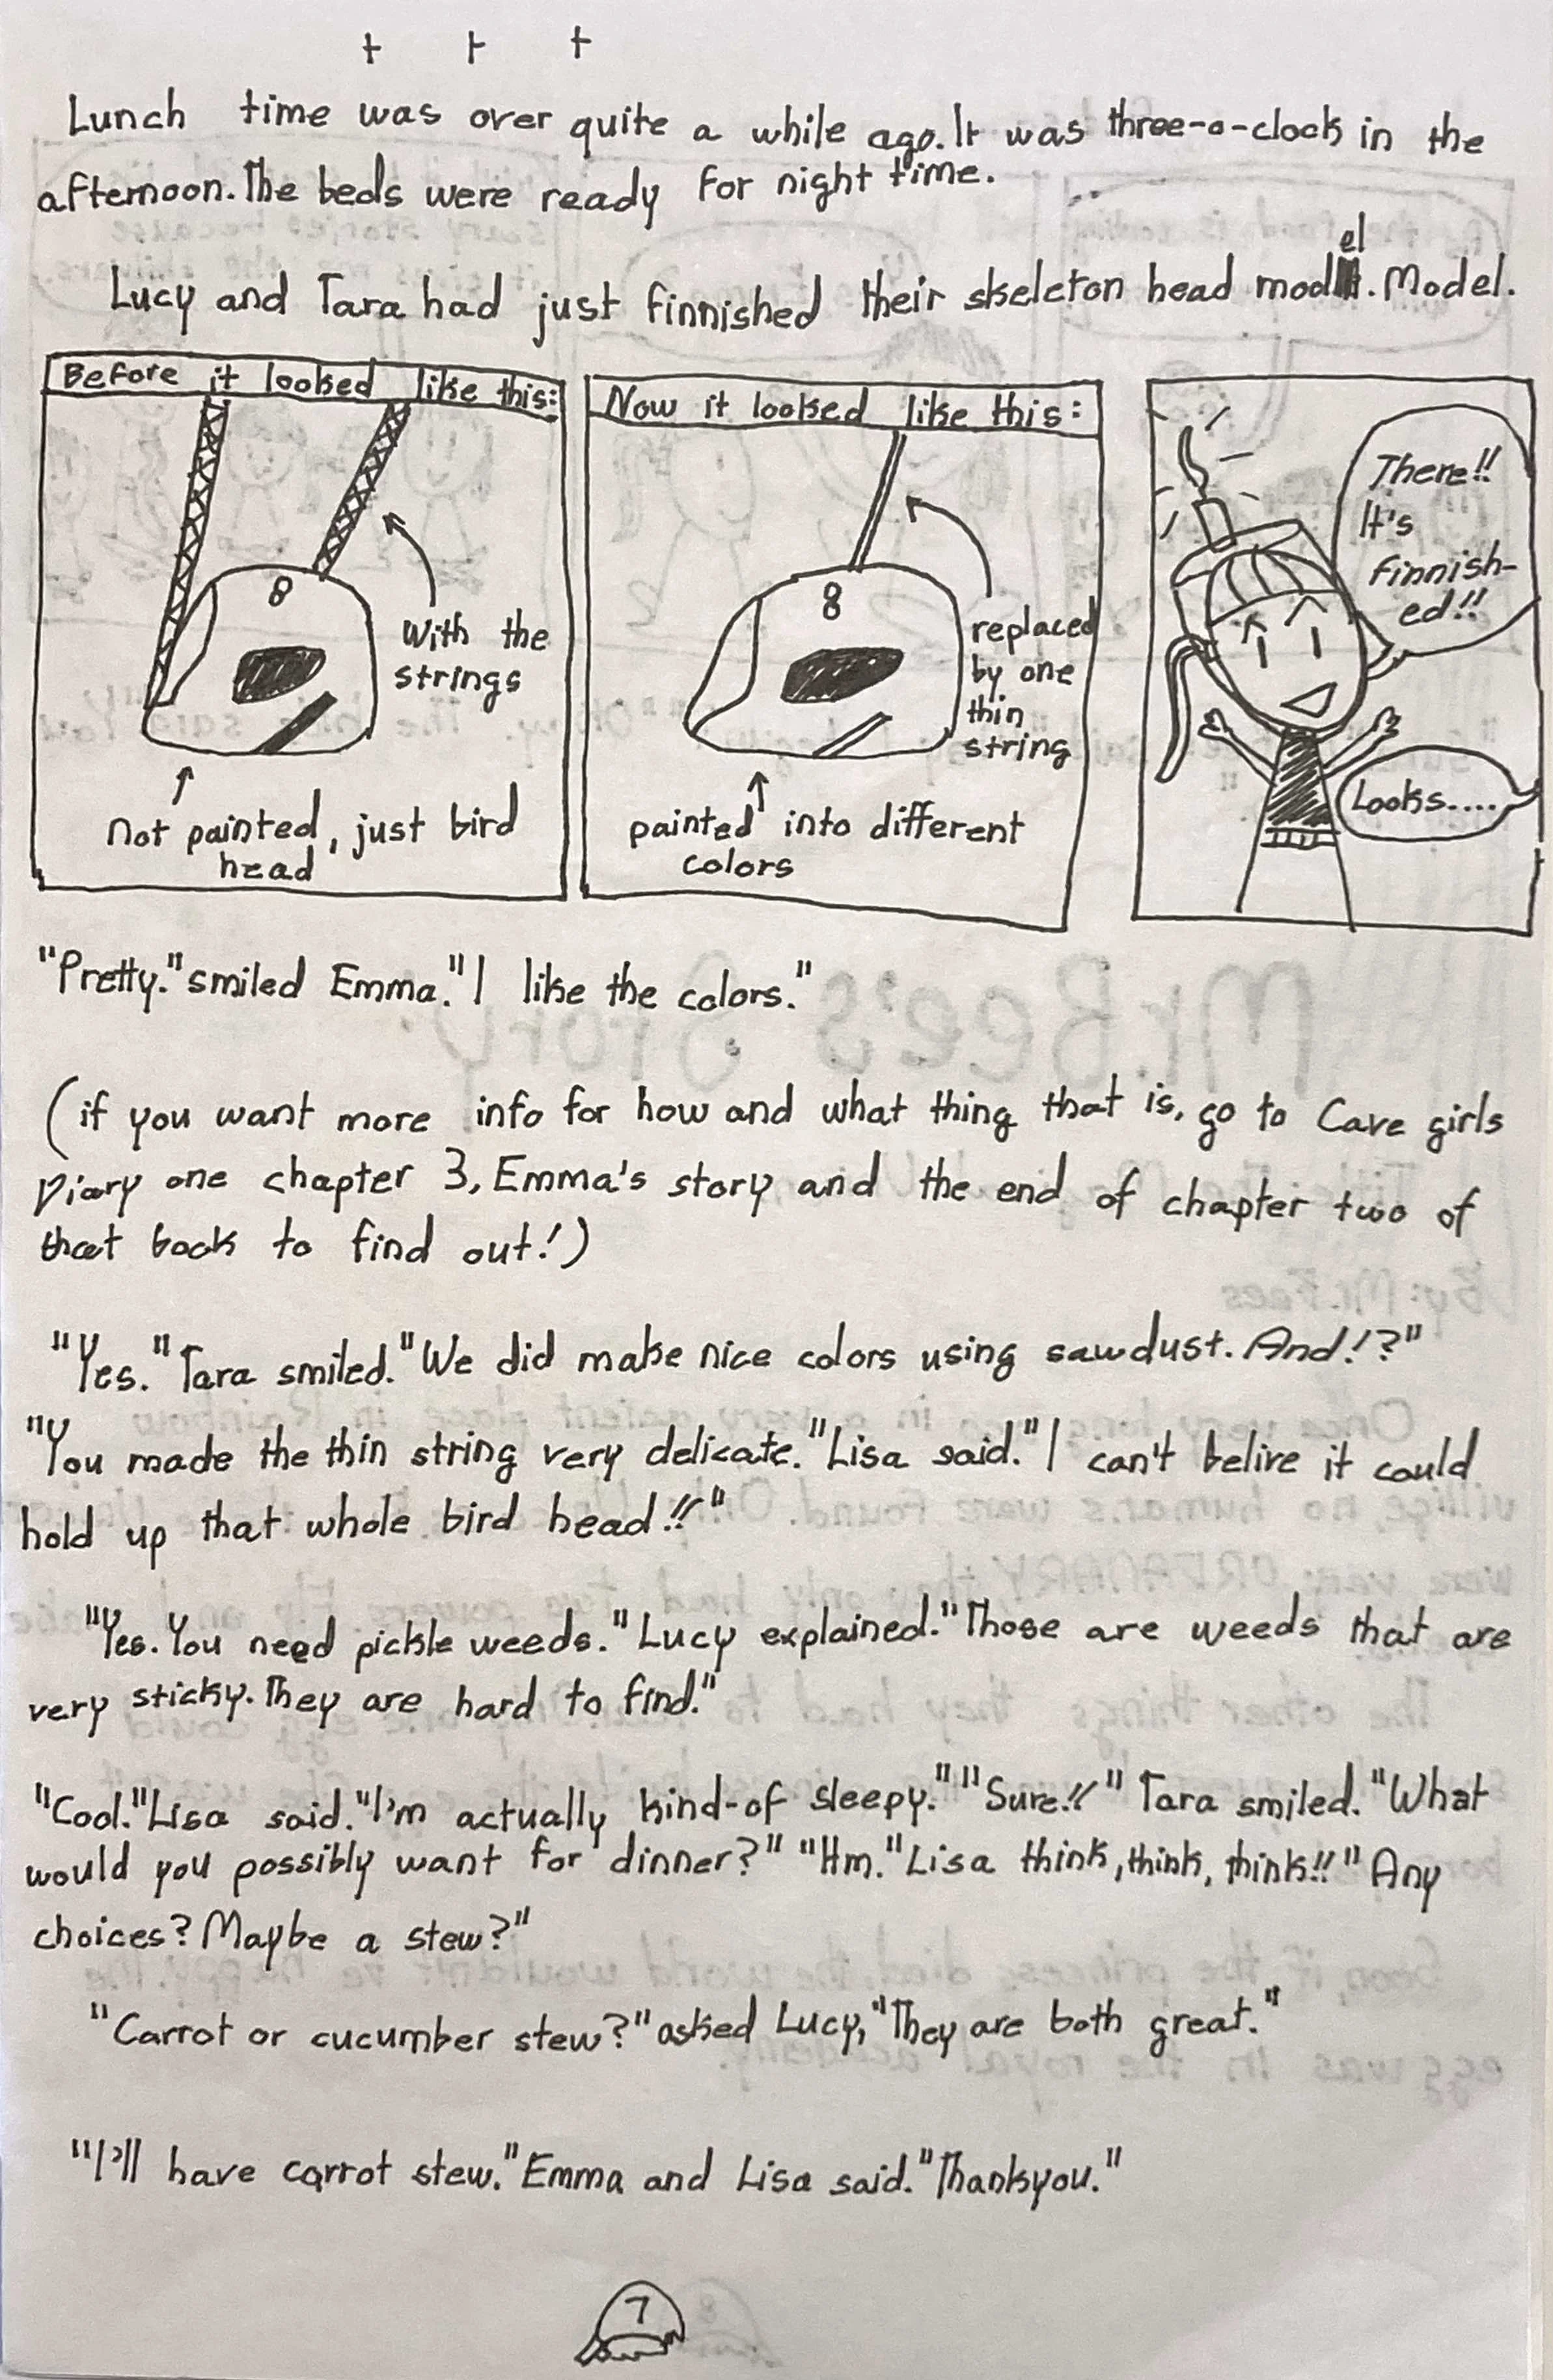 + + +
Lunch time was over quite a while ago. It was three-o-clock in the
afternoon. The beds were ready for night time.
Lucy and Tara had just finnished their skeleton head model. Model.
Before it looked like this:
8
with the
strings
Not painted, just bird
head
Now it looked like this:
8
replaced
by one
thin
string
painted into different
colors
There!!
It's
finnish-
ed!!
Looks....
"Pretty." smiled Emma. "I like the colors."
(if you want more info for how and what thing that is, go to Cave girls
Diary one chapter 3, Emma's story and the end of chapter two of
that book to find out!)
"Yes." Tara smiled. "We did make nice colors using sawdust. And!?"
"You made the thin string very delicate." Lisa said. "I can't belive it could
hold up that whole bird head!!"
"Yes. You need pickle weeds." Lucy explained. "Those are weeds that are
very sticky. They are hard to find."
"Cool." Lisa said. "I'm actually kind-of sleepy." "Sure!!" Tara smiled. "What
would you possibly want for dinner?" "Hm." Lisa think, think, think!! "Any
choices? Maybe a stew?"
"Carrot or cucumber stew?" asked Lucy, "They are both great."
"I'll have carrot stew." Emma and Lisa said. "Thankyou."
7